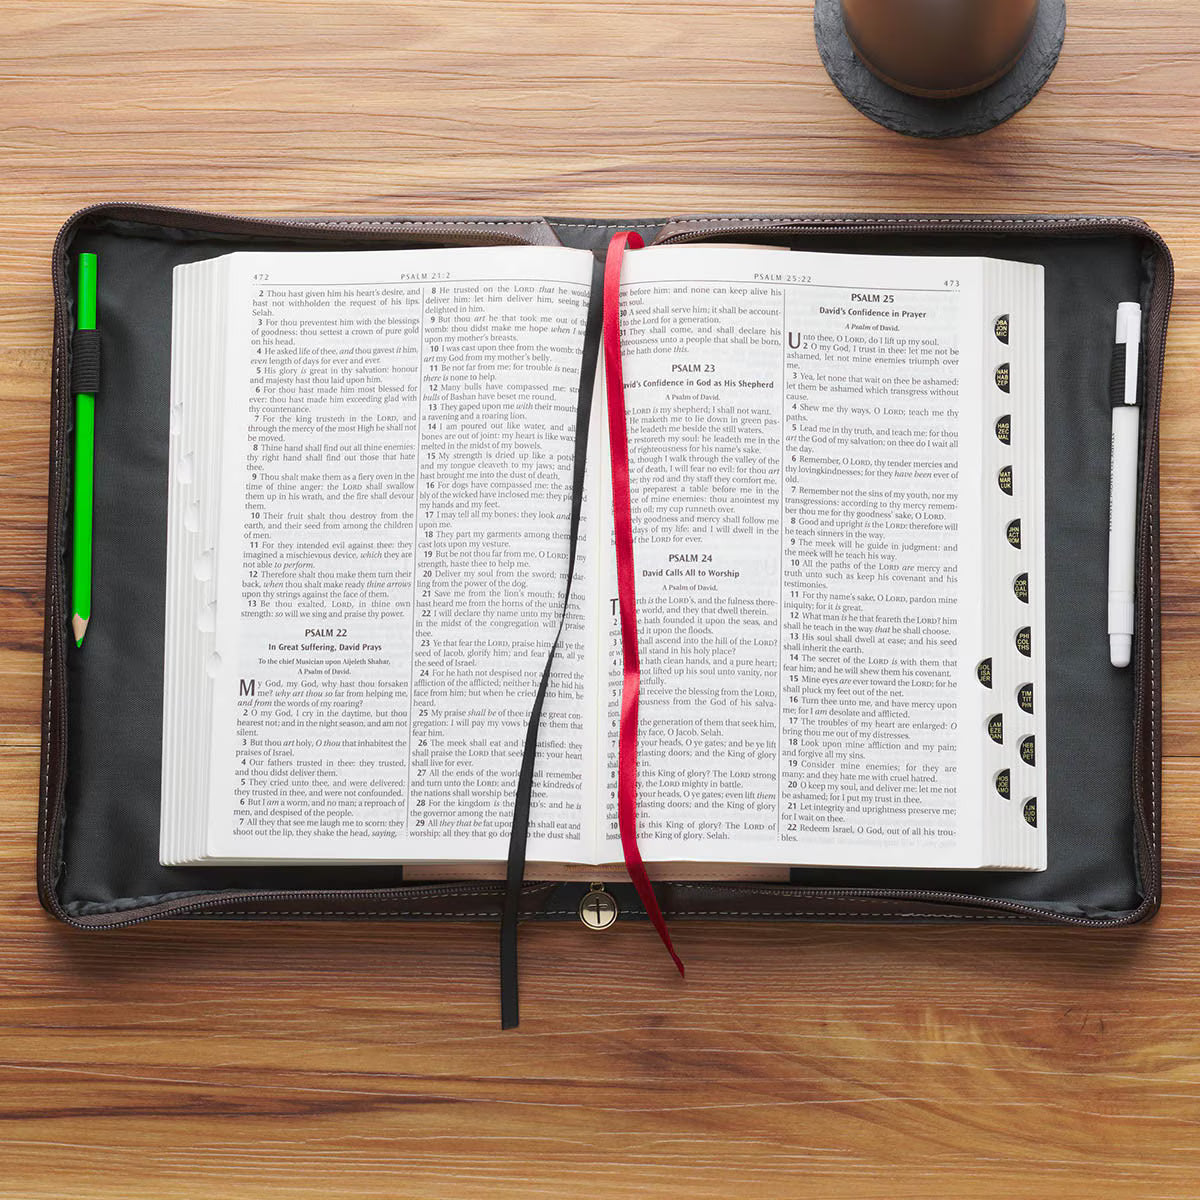 472
PSALM 21:2
2 Thou hast given him his heart's desire, and
hast not withholden the request of his lips.
Selah.
3 For thou preventest him with the blessings
of goodness: thou settest a crown of pure gold
on his head.
4 He asked life of thee, and thou gavest it him,
even length of days for ever and ever.
5 His glory is great in thy salvation: honour
and majesty hast thou laid upon him.
6 For thou hast made him most blessed for
ever: thou hast made him exceeding glad with
thy countenance.
7 For the king trusteth in the LORD, and
through the mercy of the most High he shall not
be moved.
8 Thine hand shall find out all thine enemies:
thy right hand shall find out those that hate
thee.
9 Thou shalt make them as a fiery oven in the
time of thine anger: the LORD shall swallow
them up in his wrath, and the fire shall devour
them.
10 Their fruit shalt thou destroy from the
earth, and their seed from among the children
of men.
11 For they intended evil against thee: they
imagined a mischievous device, which they are
not able to perform.
12 Therefore shalt thou make them turn their
back, when thou shalt make ready thine arrows
upon thy strings against the face of them.
13 Be thou exalted, LORD, in thine own
strength: so will we sing and praise thy power.
PSALM 22
In Great Suffering, David Prays
To the chief Musician upon Aijeleth Shahar,
A Psalm of David.
My God, my God, why hast thou forsaken
me? why art thou so far from helping me,
and from the words of my roaring?
2 O my God, I cry in the daytime, but thou
hearest not; and in the night season, and am not
silent.
3 But thou art holy, O thou that inhabitest the
praises of Israel.
4 Our fathers trusted in thee: they trusted,
and thou didst deliver them.
5 They cried unto thee, and were delivered:
they trusted in thee, and were not confounded.
6 But I am a worm, and no man; a reproach of
men, and despised of the people.
7 All they that see me laugh me to scorn: they
shoot out the lip, they shake the head, saying,
8 He trusted on the LORD that he would
deliver him: let him deliver him, seeing he
delighted in him.
9 But thou art he that took me out of the
womb: thou didst make me hope when I
upon my mother's breasts.
10 I was cast upon thee from the womb:
art my God from my mother's belly.
11 Be not far from me; for trouble is near;
there is none to help.
12 Many bulls have compassed me:
bulls of Bashan have beset me round.
13 They gaped upon me with their mouths
a ravening and a roaring lion.
14 I am poured out like water, and all
bones are out of joint: my heart is like wax;
melted in the midst of my bowels.
15 My strength is dried up like a
and my tongue cleaveth to my jaws; and
hast brought me into the dust of death.
16 For dogs have compassed me: the
bly of the wicked have inclosed me: they
my hands and my feet.
17 I may tell all my bones: they look and
upon me.
18 They part my garments among
cast lots upon my vesture.
19 But be not thou far from me, O LORD:
strength, haste thee to help me.
20 Deliver my soul from the sword; my
ling from the power of the dog.
21 Save me from the lion's mouth: for thou
hast heard me from the horns of the unicorns.
22 I will declare thy name unto my brethren:
in the midst of the congregation will praise
thee.
23 Ye that fear the LORD, praise him; all ye
seed of Jacob, glorify him; and fear him, all ye
the seed of Israel.
24 For he hath not despised nor abhorred the
affliction of the afflicted; neither hath he hid his
face from him; but when he cried unto him, he
heard.
25 My praise shall be of thee in the great con-
gregation: I will pay my vows before them that
fear him.
26 The meek shall eat and be satisfied: they
shall praise the LORD that seek him: your heart
shall live for ever.
27 All the ends of the world shall remember
and turn unto the LORD: and all the kindreds of
the nations shall worship before thee.
28 For the kingdom is the LORD's: and he is
the governor among the nations.
29 All they that be fat upon earth shall eat and
worship: all they that go down to the dust shall
PSALM 25:22
473
before him: and none can keep alive his
own soul.
30 A seed shall serve him; it shall be account-
to the Lord for a generation.
31 They shall come, and shall declare his
righteousness unto a people that shall be born,
that he hath done this.
PSALM 23
David's Confidence in God as His Shepherd
A Psalm of David.
LORD is my shepherd; I shall not want.
He maketh me to lie down in green pas-
he leadeth me beside the still waters.
restoreth my soul: he leadeth me in the
of righteousness for his name's sake.
though I walk through the valley of the
of death, I will fear no evil: for thou art
me; thy rod and thy staff they comfort me.
preparest a table before me in the
of mine enemies: thou anointest my
with oil; my cup runneth over.
goodness and mercy shall follow me
days of my life: and I will dwell in the
of the LORD for ever.
PSALM 24
David Calls All to Worship
A Psalm of David.
earth is the LORD's, and the fulness there-
world, and they that dwell therein.
2 hath founded it upon the seas, and
it upon the floods.
3 shall ascend into the hill of the LORD?
or shall stand in his holy place?
4 hath clean hands, and a pure heart;
who hath not lifted up his soul unto vanity, nor
sworn deceitfully.
5 shall receive the blessing from the LORD,
righteousness from the God of his salva-
6 the generation of them that seek him,
that thy face, O Jacob. Selah.
7 your heads, O ye gates; and be ye lift
up, everlasting doors; and the King of glory
shall
8 is this King of glory? The LORD strong
and mighty, the LORD mighty in battle.
9 your heads, O ye gates; even lift them
up, everlasting doors; and the King of glory
shall
10 is this King of glory? The LORD of
hosts, is the King of glory. Selah.
PSALM 25
David's Confidence in Prayer
A Psalm of David.
Unto thee, O LORD, do I lift up my soul.
2 O my God, I trust in thee: let me not be
ashamed, let not mine enemies triumph over
me.
3 Yea, let none that wait on thee be ashamed:
let them be ashamed which transgress without
cause.
4 Shew me thy ways, O LORD; teach me thy
paths.
5 Lead me in thy truth, and teach me: for thou
art the God of my salvation; on thee do I wait all
the day.
6 Remember, O LORD, thy tender mercies and
thy lovingkindnesses; for they have been ever of
old.
7 Remember not the sins of my youth, nor my
transgressions: according to thy mercy remem-
ber thou me for thy goodness' sake, O LORD.
8 Good and upright is the LORD: therefore will
he teach sinners in the way.
9 The meek will he guide in judgment: and
the meek will he teach his way.
10 All the paths of the LORD are mercy and
truth unto such as keep his covenant and his
testimonies.
11 For thy name's sake, O LORD, pardon mine
iniquity; for it is great.
12 What man is he that feareth the LORD? him
shall he teach in the way that he shall choose.
13 His soul shall dwell at ease; and his seed
shall inherit the earth.
14 The secret of the LORD is with them that
fear him; and he will shew them his covenant.
15 Mine eyes are ever toward the LORD; for he
shall pluck my feet out of the net.
16 Turn thee unto me, and have mercy upon
me; for I am desolate and afflicted.
17 The troubles of my heart are enlarged: O
bring thou me out of my distresses.
18 Look upon mine affliction and my pain;
and forgive all my sins.
19 Consider mine enemies; for they are
many; and they hate me with cruel hatred.
20 O keep my soul, and deliver me: let me not
be ashamed; for I put my trust in thee.
21 Let integrity and uprightness preserve me;
for I wait on thee.
22 Redeem Israel, O God, out of all his trou-
bles.
OBA
JON
MIC
NAH
HAB
ZEP
HAG
ZEC
MAL
MAT
MAR
LUK
JHN
ACT
ROM
COR
GAL
EPH
PHI
COL
THS
SOL
ISA
JER
TIM
TIT
PHN
LAM
EZE
DAN
HEB
JAS
PET
HOS
JOE
AMO
JN
JUD
REV